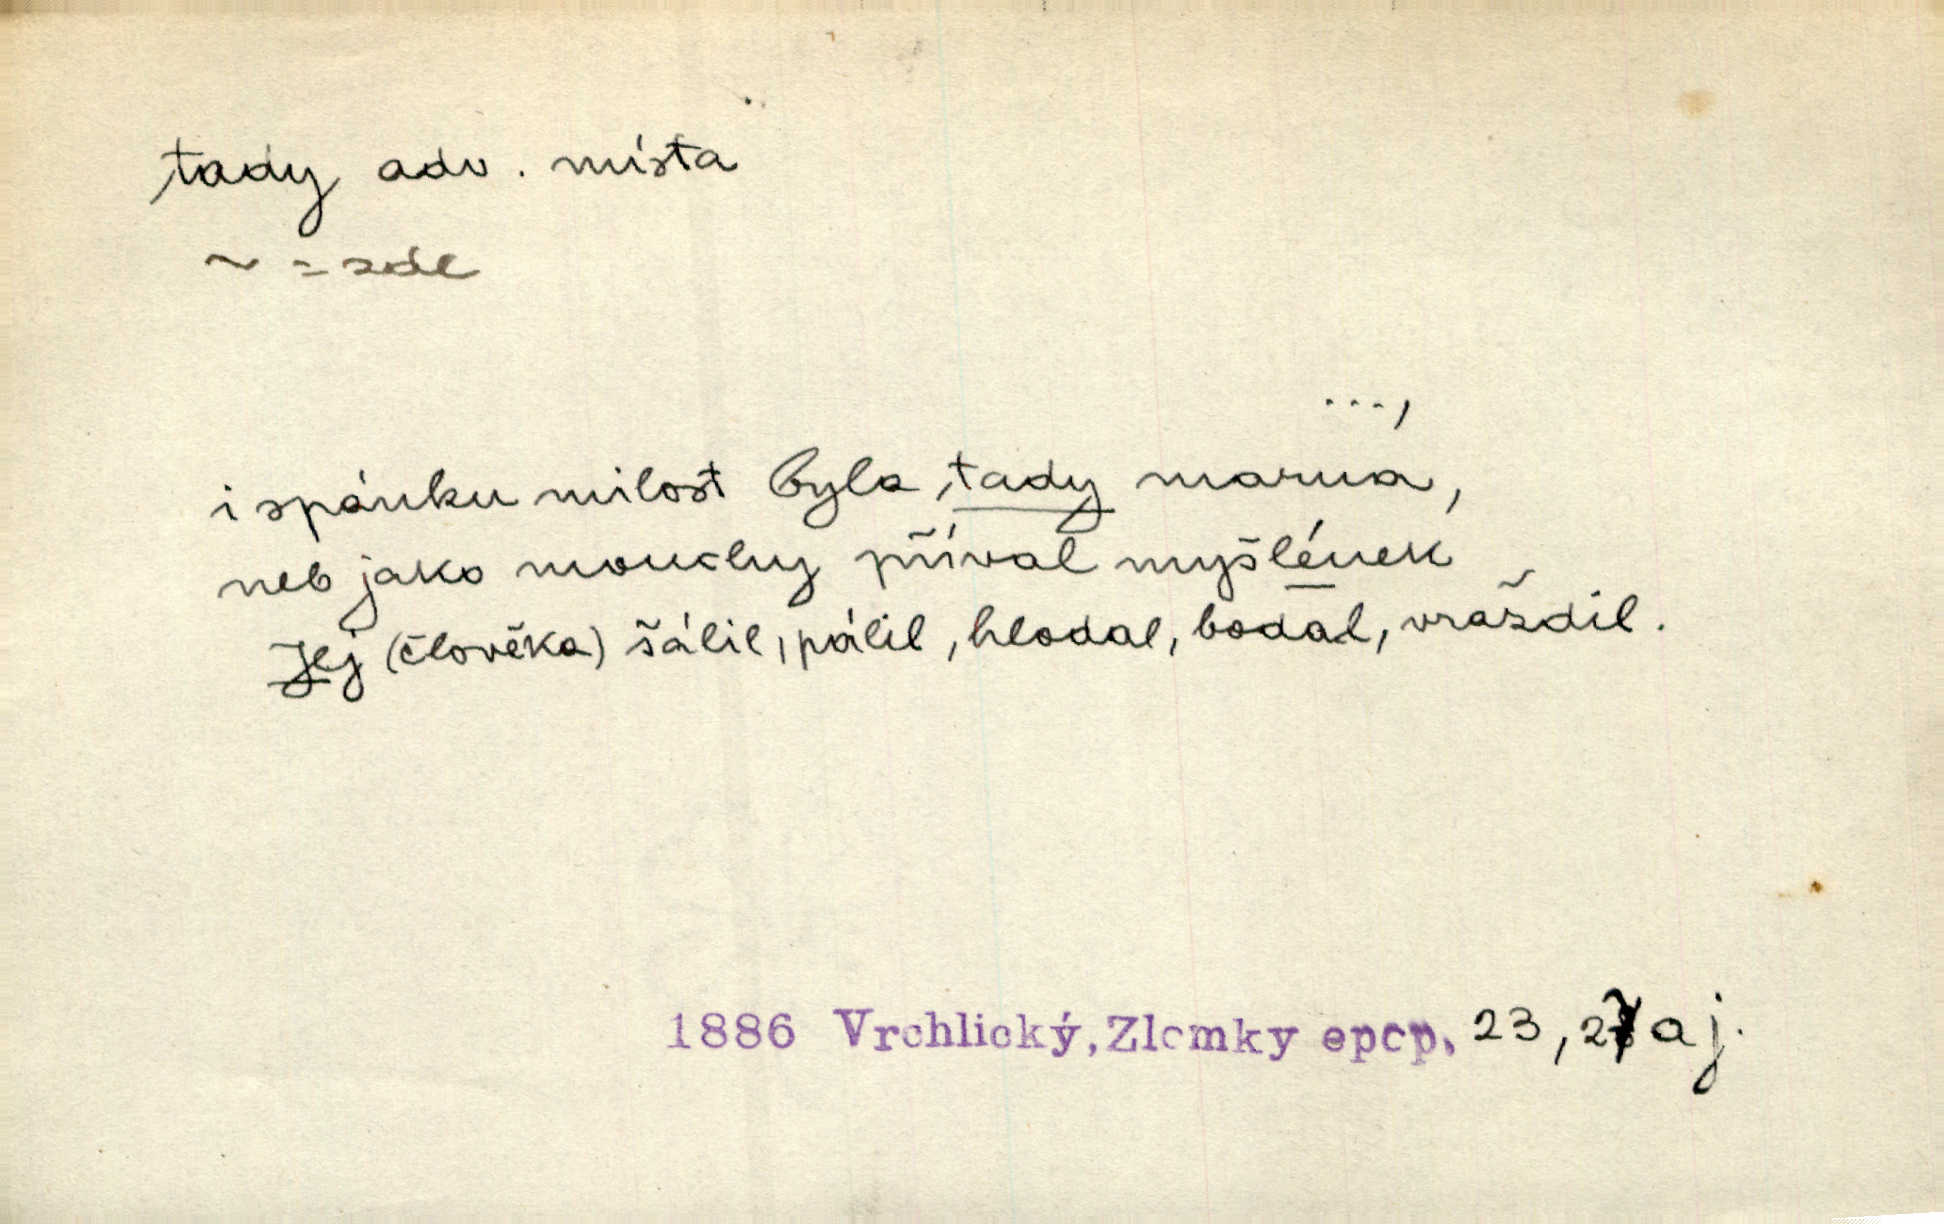 tady adv. místa
~ = zde
...,
i spánku milost byla tady marna,
neb jako mouchy příval myšlének
Jej (člověka) šálil, pálil, hlodal, bodal, vraždil.
1886 Vrchlický, Zlomky epop. 23, 27 aj.